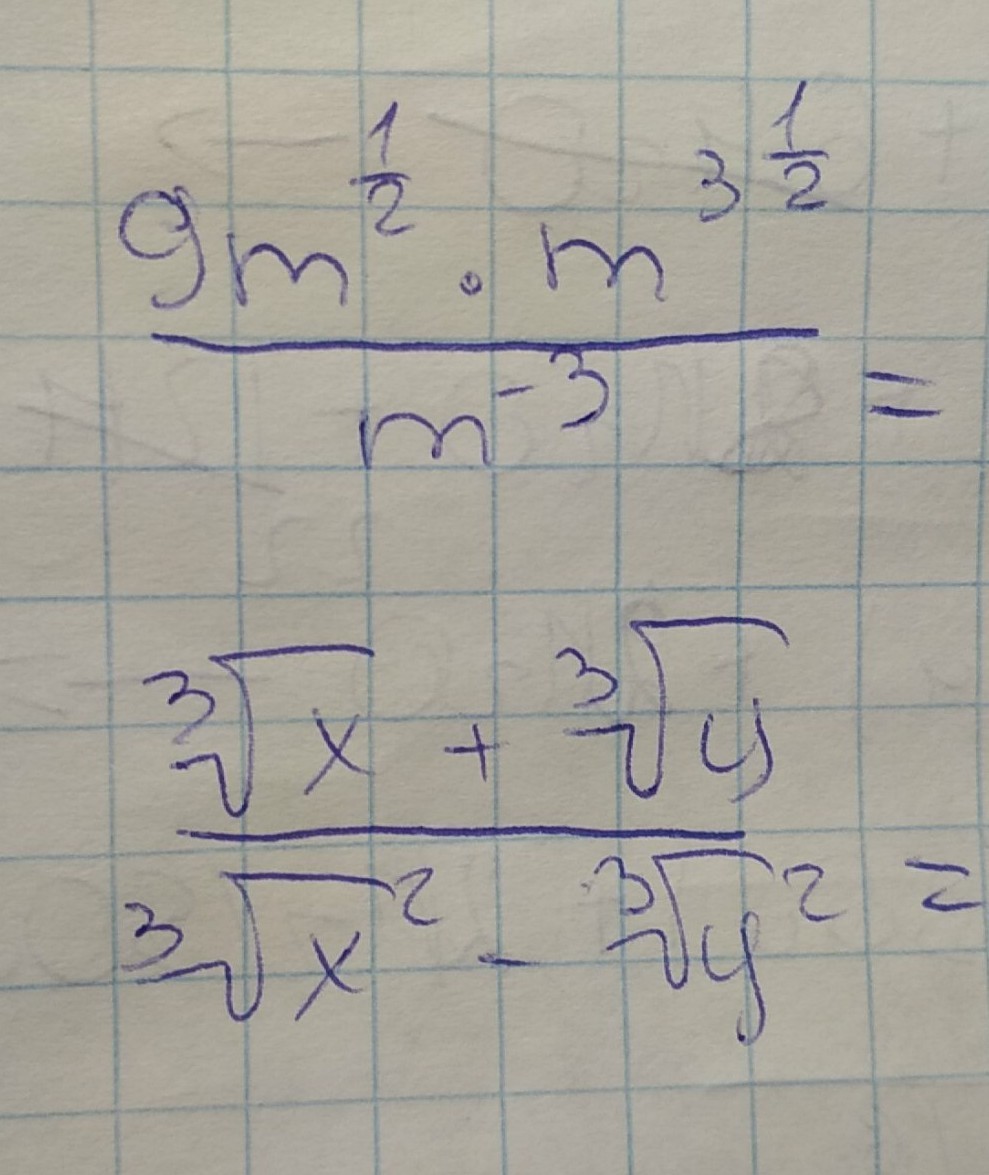 $\frac{9m^{\frac{1}{2}} \cdot m^{3\frac{1}{2}}}{m^{-3}} =$
$\frac{\sqrt[3]{x} + \sqrt[3]{y}}{\sqrt[3]{x}^2 - \sqrt[3]{y}^2} =$